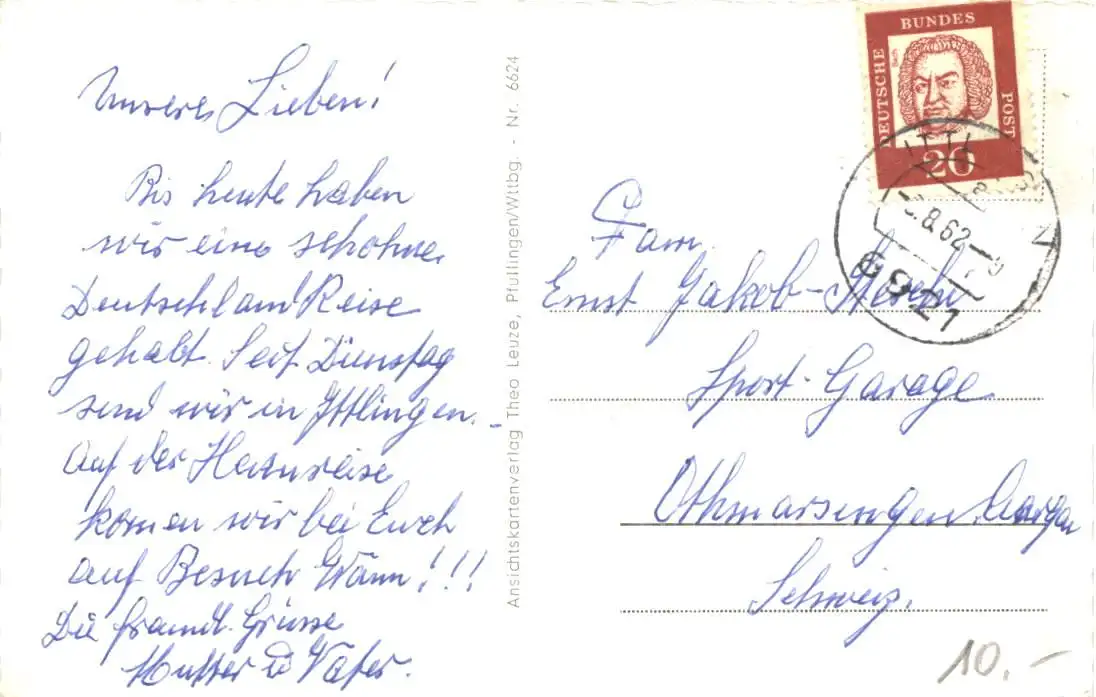 Unsere Lieben!
Bis heute haben
wir eine schöhne
Deutschland Reise
gehabt. Seit Dienstag
send wir in Ittlingen.
Auf der Heimreise
komen wir bei Euch
auf Besuch Wänn!!!
Die freundl. Grüsse
Mutter u Vater.
Ansichtskartenverlag Theo Leuze, Pfullingen/Wttbg. - Nr. 6624
DEUTSCHE BUNDES POST
20
8.62
6921
Fam.
Ernst Jakob-
Sport-Garage
Othmarsingen Aargau
Schweiz.
10.-